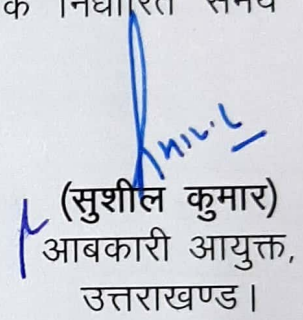 के निर्धारित समय
(सुशील कुमार)
आबकारी आयुक्त,
उत्तराखण्ड।